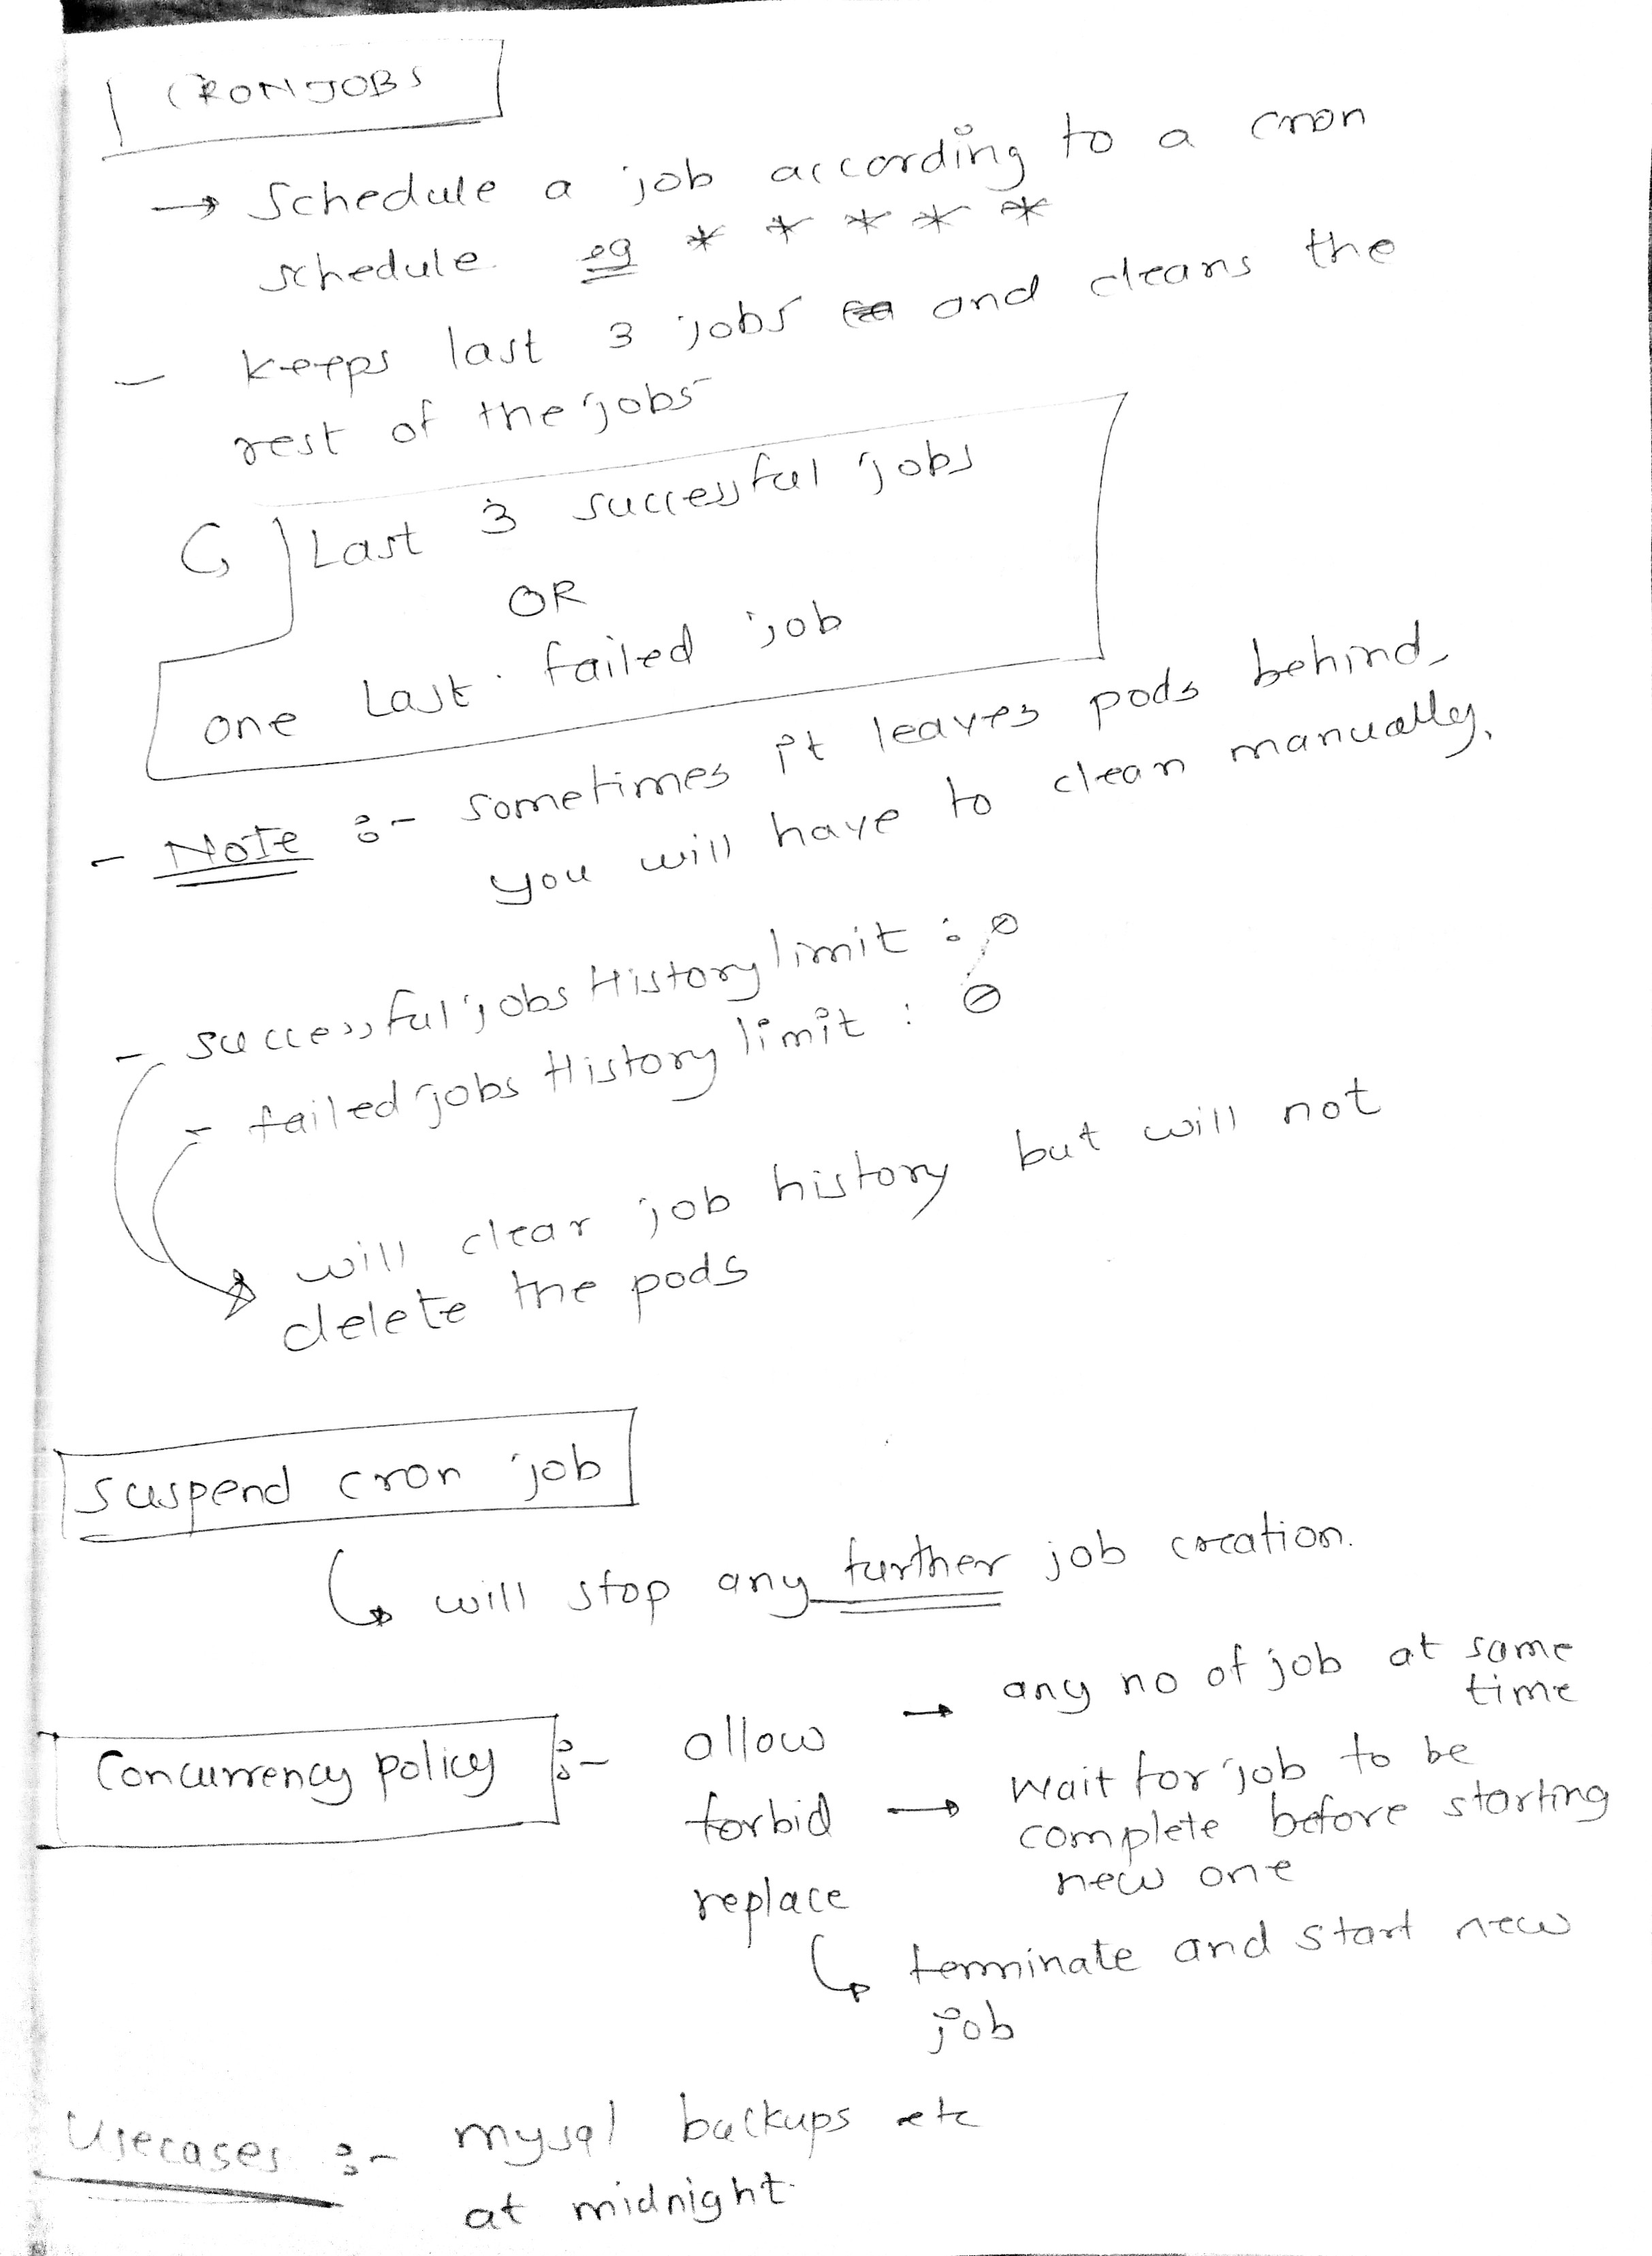 CRONJOBS
→ Schedule a job according to a cron
schedule. eg * * * * *
- keeps last 3 jobs and cleans the
rest of the jobs
Last 3 successful jobs
OR
one Last failed job
- NOTE :- sometimes it leaves pods behind,
you will have to clean manually.
- successfuljobsHistorylimit : 0
- failedjobsHistorylimit : 0
will clear job history but will not
delete the pods
suspend cron job
will stop any further job creation.
Concurrency policy :- allow → any no of job at same
time
forbid → wait for job to be
complete before starting
new one
replace
terminate and start new
job
Usecases :- mysql backups etc
at midnight.